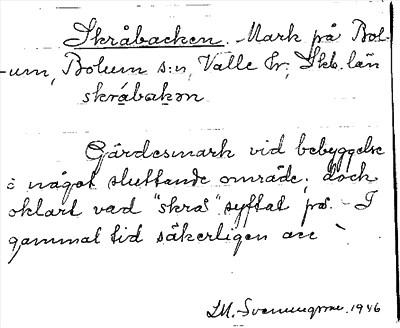 Skråbacken. Mark på Bol-
-um, Bolum s:n, Valle hr; Skb. län
skråbakən
Gärdesmark vid bebyggelse
i något sluttande område; dock
oklart vad "skrå" syftat på. - I
gammal tid säkerligen
1946